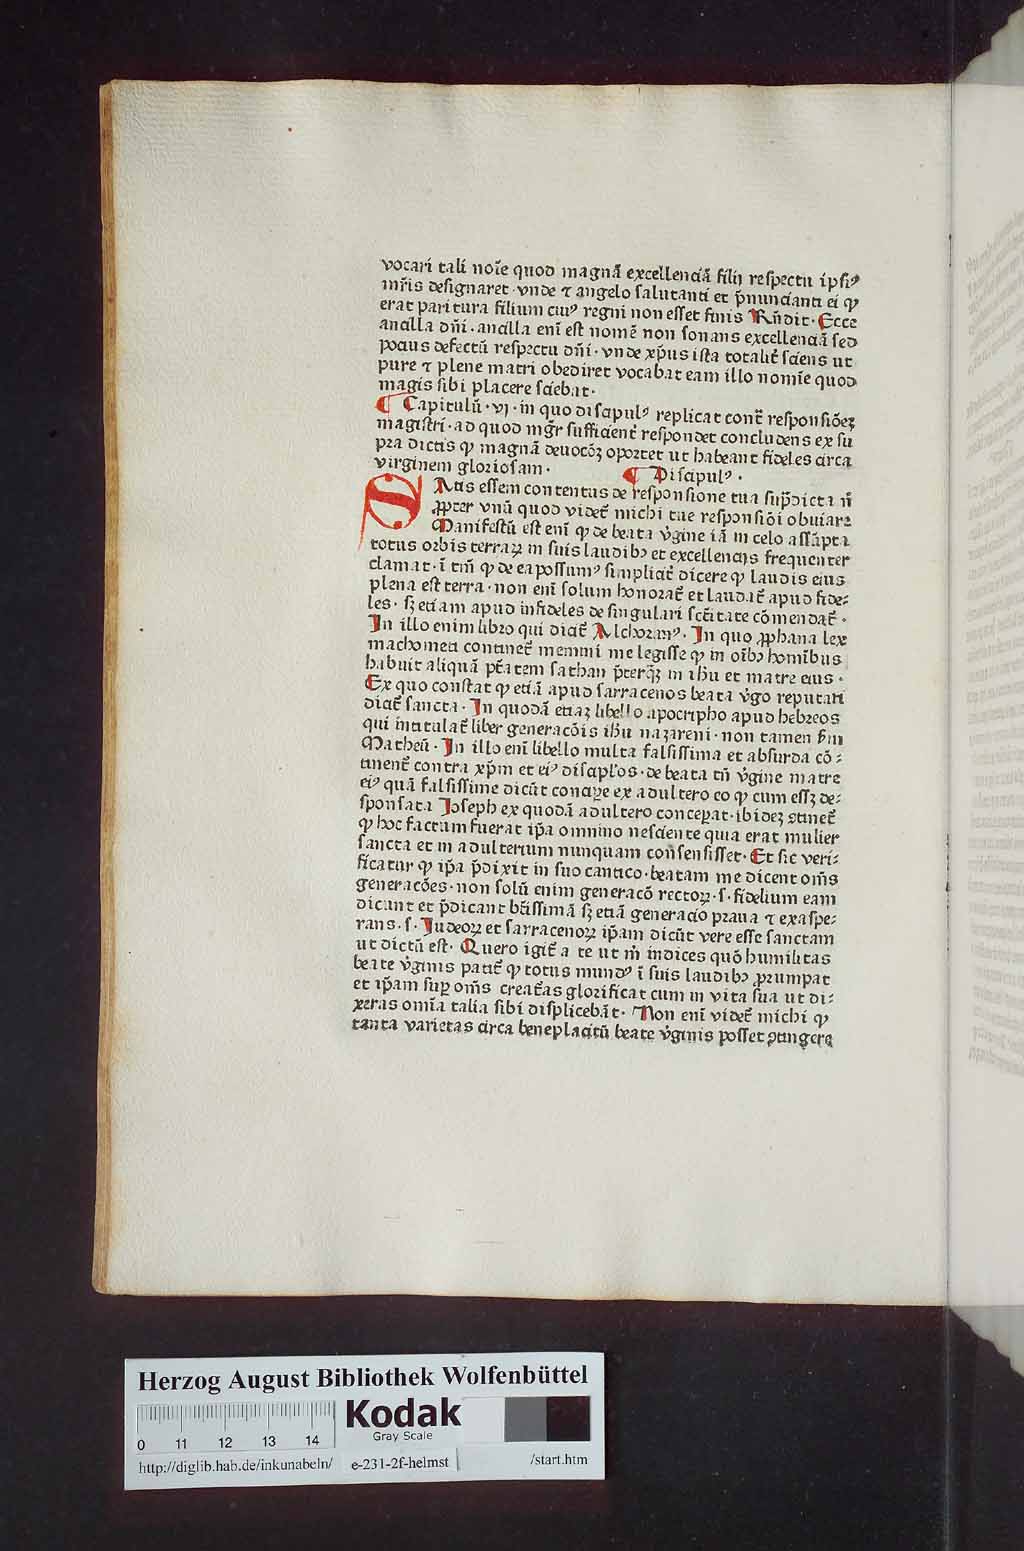 vocari tali noīe quod magnā excellenciā filij respectu ipsiꝰ
mr̄is designaret · vnde ⁊ angelo salutanti et p̄nuncianti ei ꝙ
erat paritura filium cuiꝰ regni non esset finis Rn̄dit · Ecce
ancilla dn̄i · ancilla enī est nomē non sonans excellenciā sed
pocius defectū respectu dn̄i · vnde xp̄us ista totalit̄ sciens ut
pure ⁊ plene matri obediret vocabat eam illo nomīe quod
magis sibi placere sciebat ·
¶ Capitulū · vj · in quo discipulꝰ replicat cont̄ responsiōeꝫ
magistri · ad quod mgr̄ sufficient̄ respondet concludens ex su
pra dictis ꝙ magnā deuocōꝫ oportet ut habeant fideles circa
virginem gloriosam · ¶ Discipulꝰ ·
SAtis essem contentus de responsione tua sup̄dicta n̄
ꝓpter vnū quod videt̄ michi tue responsiōi obuiare
Manifestū est enī ꝙ de beata v̄gine iā in celo assūpta
totus orbis terraꝝ in suis laudibꝫ et excellencijs frequenter
clamat · ī tm̄ ꝙ de ea possumꝰ simplicit̄ dicere ꝙ laudis eius
plena est terra · non enī solum honorat̄ et laudat̄ apud fide⸗
les · sꝫ etiam apud infideles de singulari sc̄titate cōmendat̄ ·
In illo enim libro qui dicit̄ Alchoranꝰ · In quo ꝓphana lex
machometi continet̄ memini me legisse ꝙ in oībꝫ homībus
habuit aliquā pt̄atem sathan p̄terqꝫ̄ in ihū et matre eius ·
Ex quo constat ꝙ etiā apud sarracenos beata v̄go reputari
dicit̄ sancta · In quodā etiaꝫ libello apocripho apud hebreos
qui intitulat̄ liber generacōis ihū nazareni · non tamen sm̄
Matheū · In illo enī libello multa falsissima et absurda cō⸗
tinent̄ contra xp̄m et eiꝰ discipl'os · de beata tn̄ v̄gine matre
eiꝰ quā falsissime dicūt concipere ex adultero eo ꝙ cum essꝫ de⸗
sponsata Joseph ex quodā adultero conceperat · ibideꝫ ꝯtinet̄
ꝙ hoc factum fuerat ip̄a omnino nesciente quia erat mulier
sancta et in adulterium nunquam consensisset · Et sic veri⸗
ficatur ꝙ ip̄a p̄dixit in suo cantico · beatam me dicent om̄s
generacōes · non solū enim generacō rectoꝝ · s · fidelium eam
dicunt et p̄dicant bt̄issimā sꝫ etiā generacio praua ⁊ exaspe⸗
rans · s · Judeoꝝ et sarracenoꝝ ip̄am dicūt vere esse sanctam
ut dictū est · Quero igit̄ a te ut m̄ indices quō humilitas
beate v̄ginis patit̄ ꝙ totus mundꝰ ī suis laudibꝫ ꝓrumpat
et ip̄am suꝑ om̄s creat̄as glorificat cum in vita sua ut di⸗
xeras omīa talia sibi displicebāt · Non enī videt̄ michi ꝙ
tanta varietas circa beneplacitū beate v̄ginis posset ꝯtingere
Herzog August Bibliothek Wolfenbüttel
Kodak
Gray Scale
0 11 12 13 14
http://diglib.hab.de/inkunabeln/ e-231-2f-helmst /start.htm